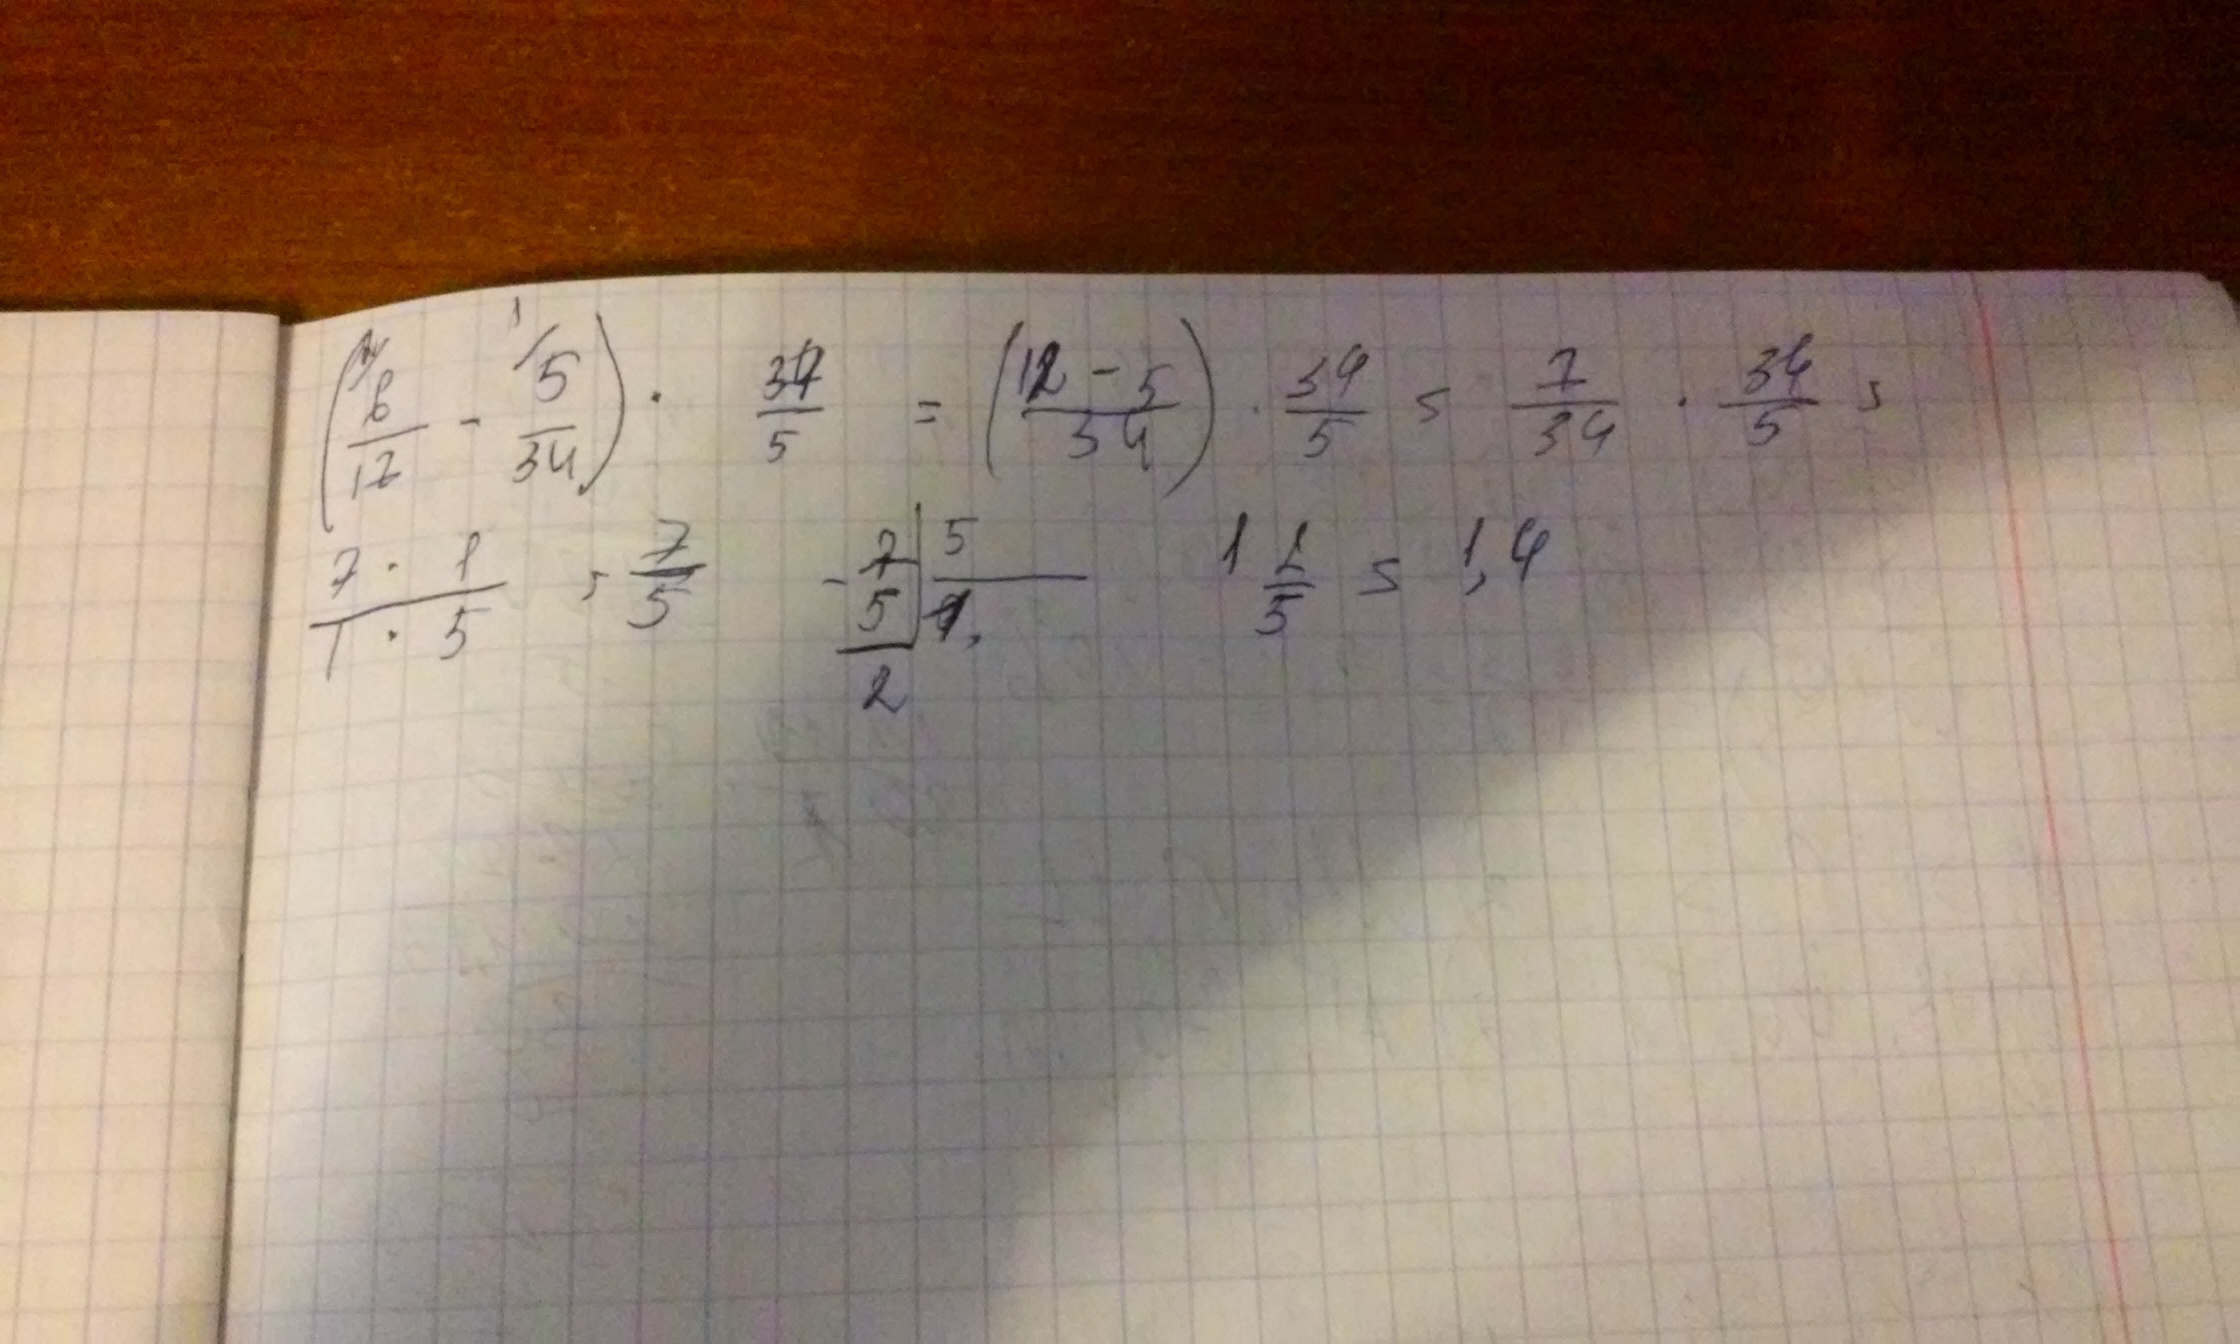 (²⁄6/17 - ¹⁄5/34) · 34/5 = (12 - 5/34) · 34/5 = 7/34 · 34/5 =
7 · 1/1 · 5 = 7/5 - 7 | 5 1 2/5 = 1,4
5 | 1,
2